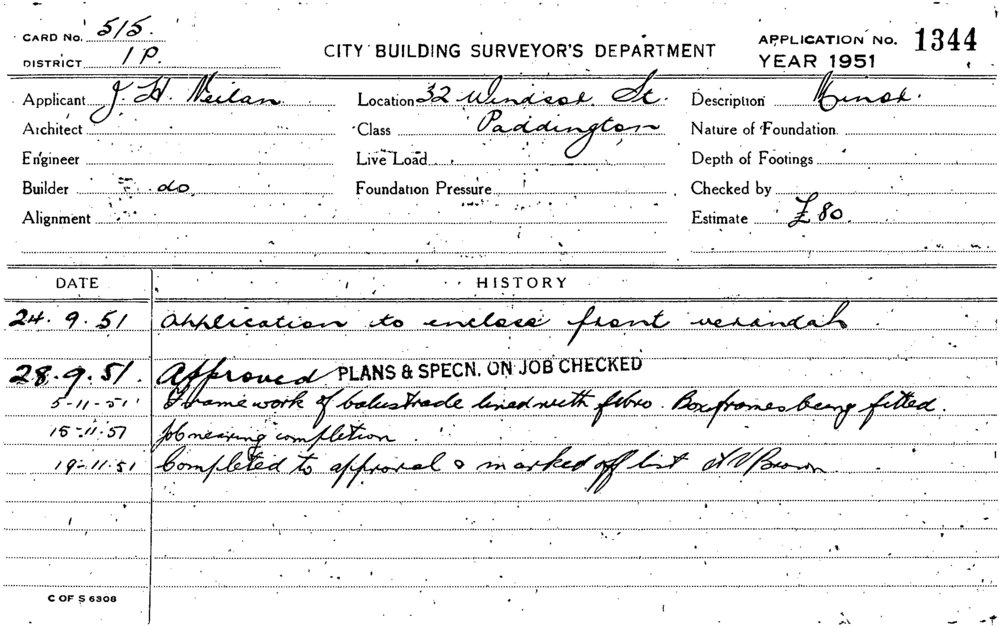 CARD No. 515.
DISTRICT 1P.
CITY BUILDING SURVEYOR'S DEPARTMENT
APPLICATION No. 1344
YEAR 1951
Applicant J. H. Neilan
Location 32 Windsor St.
Description Minor.
Architect
Class Paddington
Nature of Foundation
Engineer
Live Load
Depth of Footings
Builder do
Foundation Pressure
Checked by
Alignment
Estimate £80.
DATE HISTORY
24.9.51 Application to enclose front verandah.
28.9.51. Approved PLANS & SPECN. ON JOB CHECKED
5-11-51 Framework of balustrade lined with fibro. Box frames being fitted.
15-11-51 Job nearing completion.
19-11-51 Completed to approval & marked off list Brown
C OF S 6308